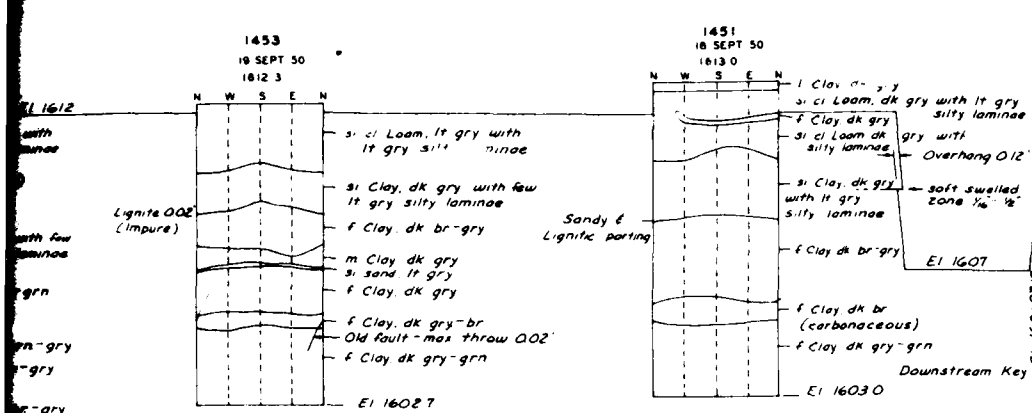 1453
19 SEPT 50
1612 3
N W S E N
El 1612
with
minae
si cl Loam, lt gry with
lt gry silt minae
si Clay, dk gry with few
lt gry silty laminae
Lignite 0.02'
(Impure)
f Clay, dk br-gry
with few
aminae
m Clay dk gry
si sand, lt gry
f Clay, dk gry
grn
f Clay, dk gry-br
Old fault - max throw 0.02'
f Clay, dk gry-grn
n-gry
-gry
-gry
El 1602 7
1451
18 SEPT 50
1613 0
N W S E N
l Clay
si cl Loam, dk gry with lt gry
silty laminae
f Clay dk gry
si cl Loam dk gry with
silty laminae
Overhang 0.12'
si Clay, dk gry
with lt gry
silty laminae
soft swelled
zone 1/16" - 1/2"
Sandy &
Lignitic parting
f Clay dk br-gry
El 1607
f Clay, dk br
(carbonaceous)
f Clay dk gry-grn
Downstream Key
El 1603 0